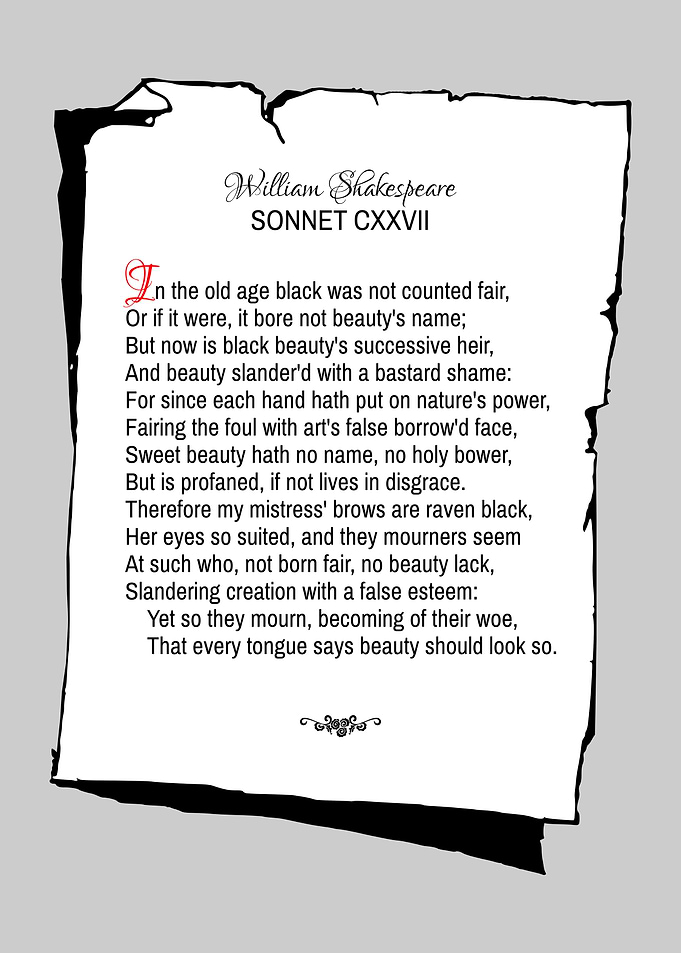 William Shakespeare
SONNET CXXVII
In the old age black was not counted fair,
Or if it were, it bore not beauty's name;
But now is black beauty's successive heir,
And beauty slander'd with a bastard shame:
For since each hand hath put on nature's power,
Fairing the foul with art's false borrow'd face,
Sweet beauty hath no name, no holy bower,
But is profaned, if not lives in disgrace.
Therefore my mistress' brows are raven black,
Her eyes so suited, and they mourners seem
At such who, not born fair, no beauty lack,
Slandering creation with a false esteem:
Yet so they mourn, becoming of their woe,
That every tongue says beauty should look so.